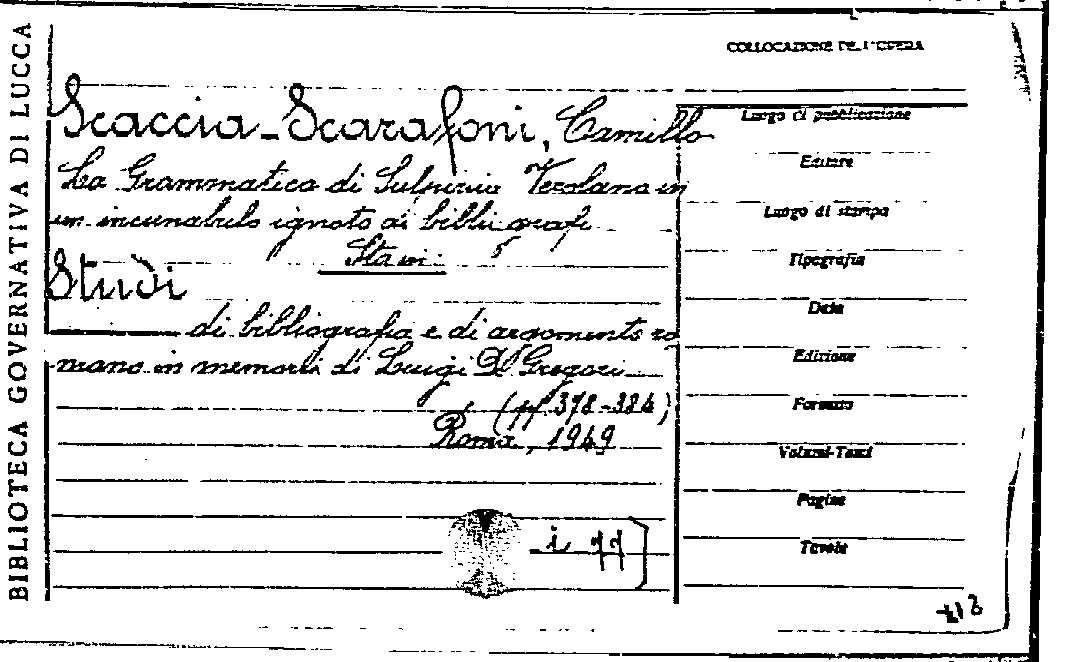 BIBLIOTECA GOVERNATIVA DI LUCCA
COLLOCAZIONE DELL'OPERA
Scaccia-Scarafoni, Camillo
La Grammatica di Sulpizio Verolano in
un incunabulo ignoto ai bibliografi
Sta in:
Studi
di bibliografia e di argomento ro
mano in memoria di Luigi De Gregori
(pp. 378-384)
Roma, 1949
i 77]
Luogo di pubblicazione
Editore
Luogo di stampa
Tipografia
Data
Edizione
Formato
Volumi-Tomi
Pagine
Tavole